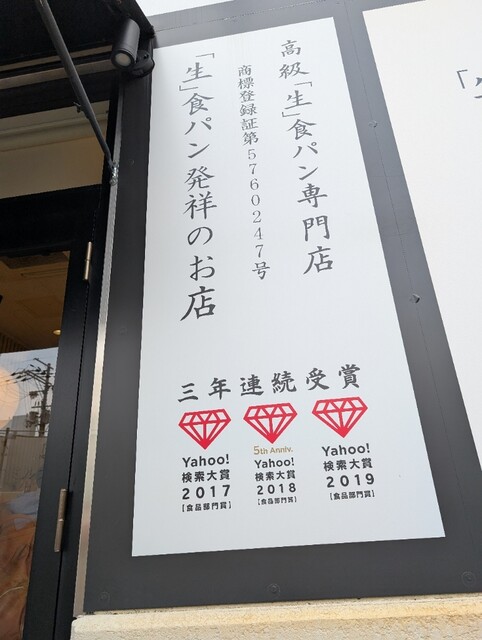 高級「生」食パン専門店
商標登録証第5760247号
「生」食パン発祥のお店
三年連続受賞
Yahoo!
検索大賞
2017
【食品部門賞】
5th Anniv.
Yahoo!
検索大賞
2018
【食品部門賞】
Yahoo!
検索大賞
2019
【食品部門賞】
「